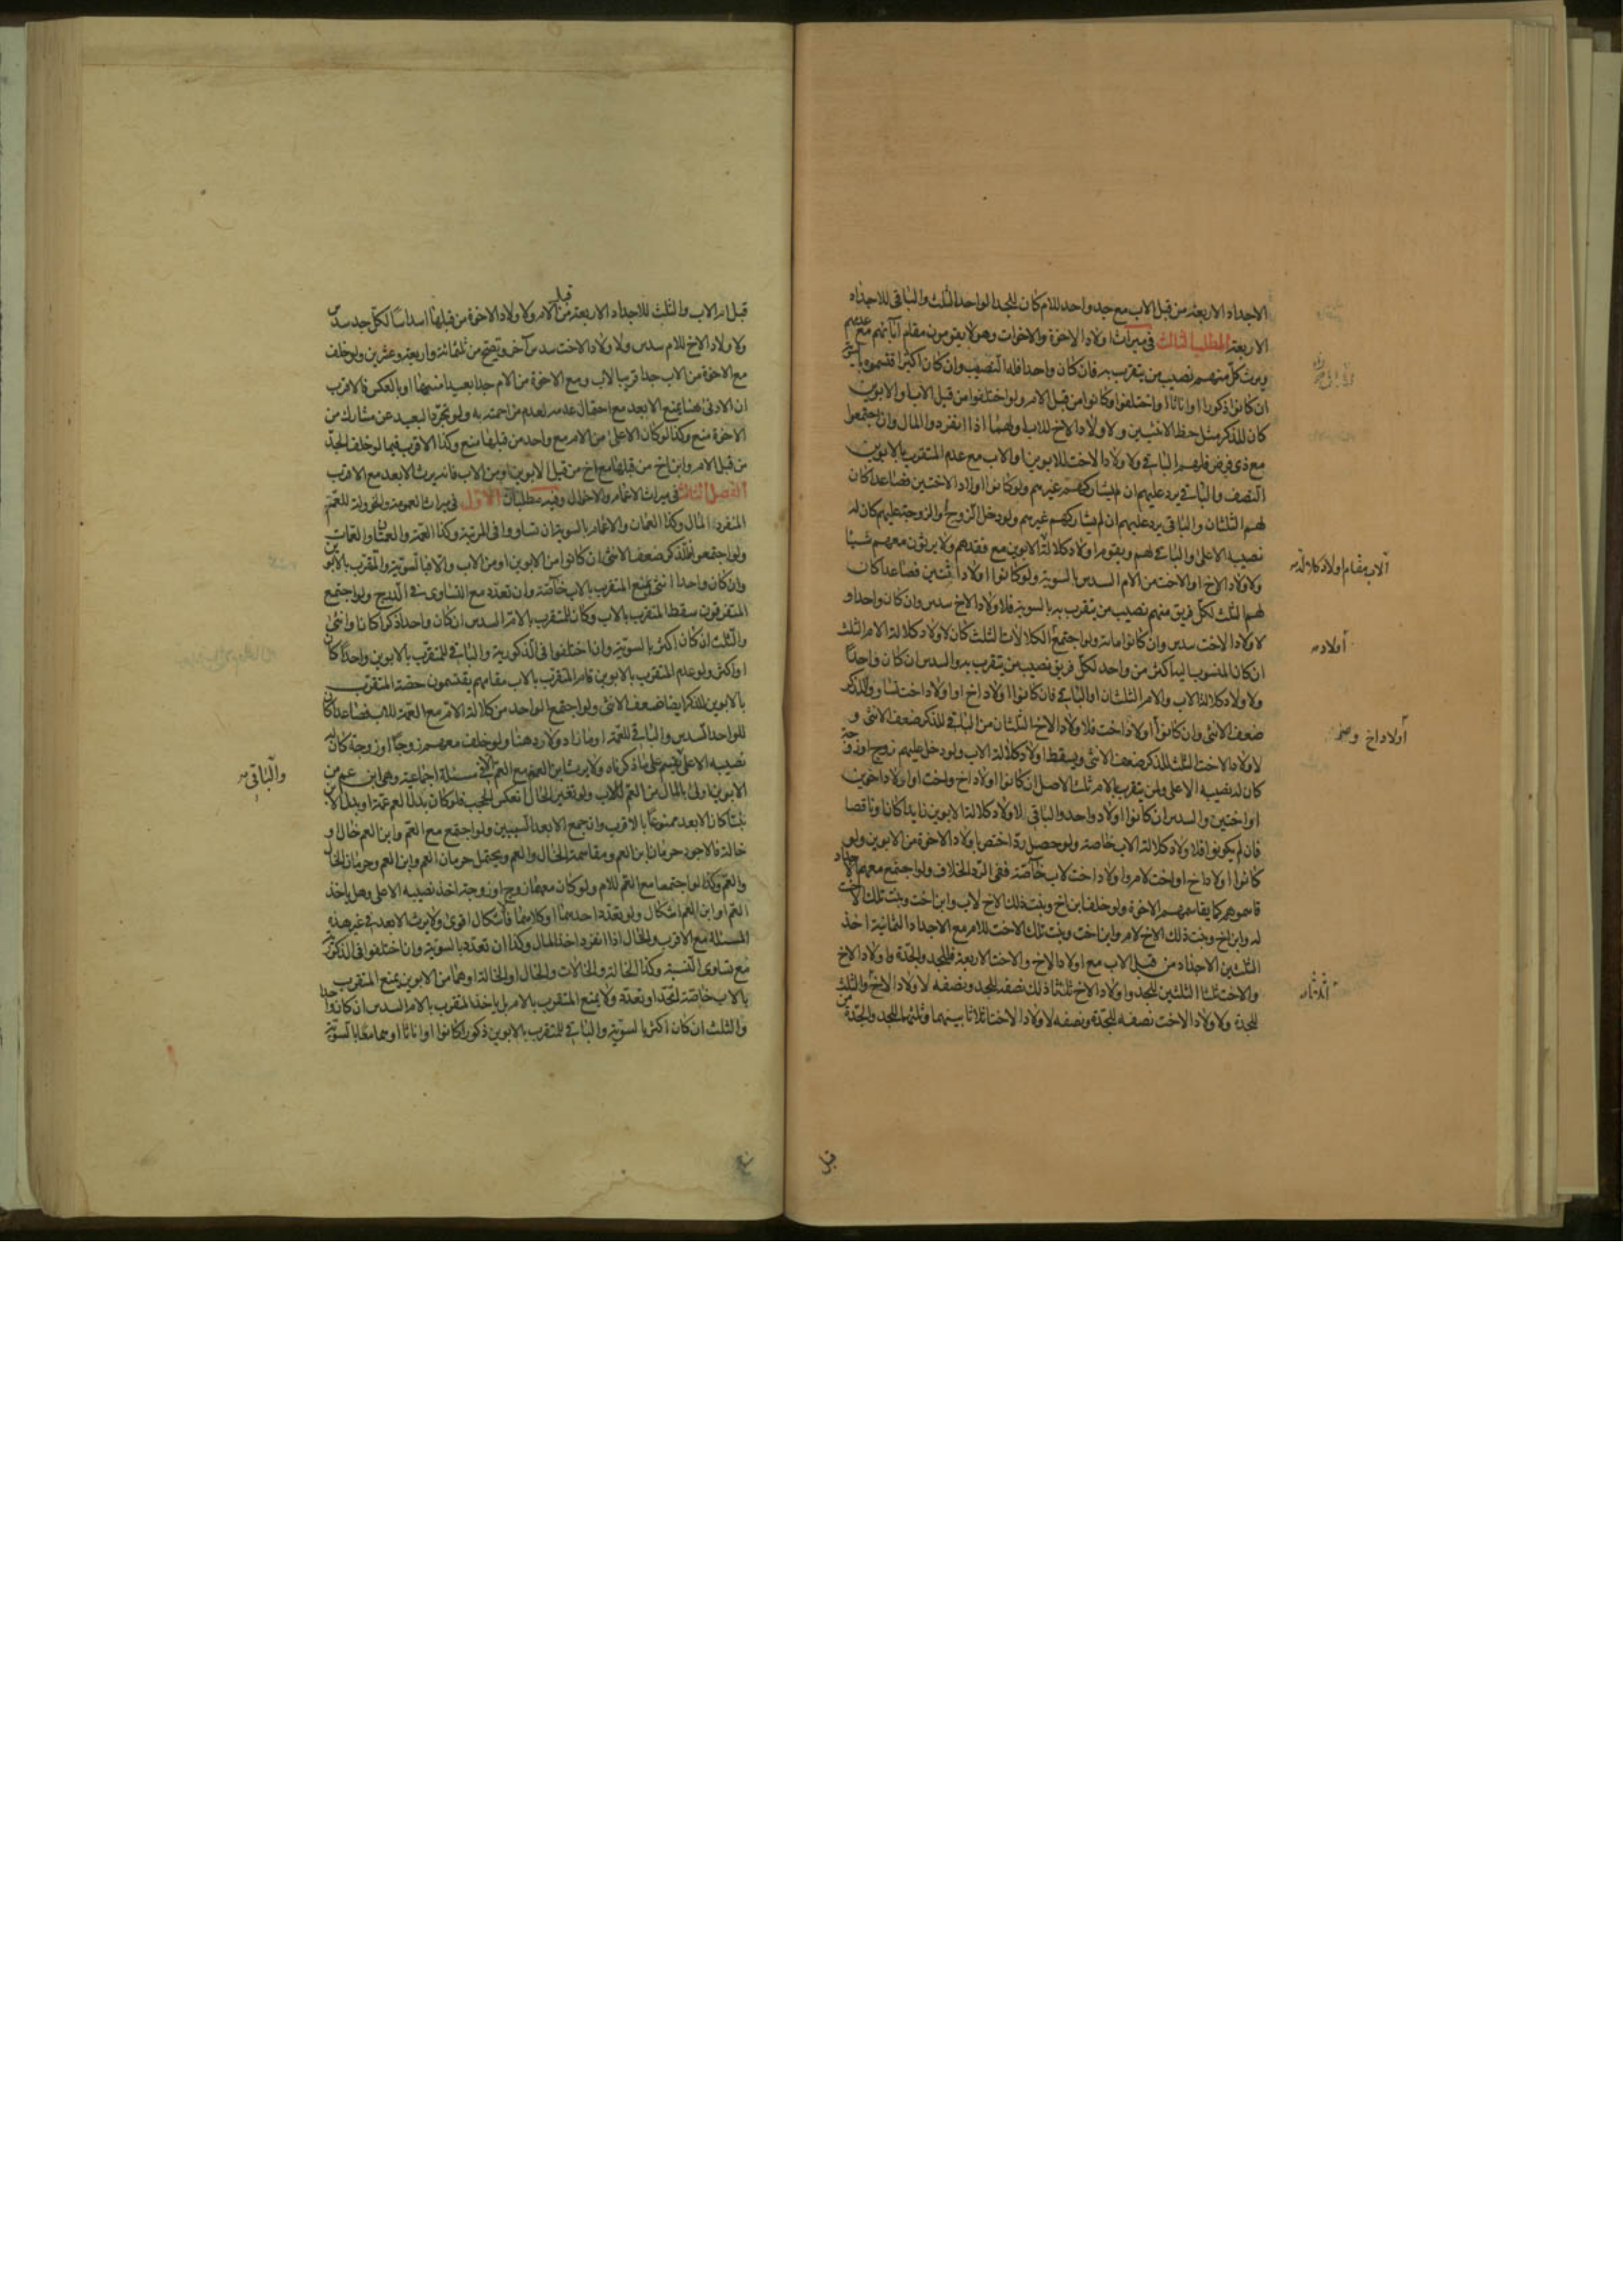 الاجداد الاربعة من قبل الاب مع جد واحد للام كان للجد الواحد الثلث والباقى للاجداد
الاربعة المطلب الثالث فى ميراث اولاد الاخوة والاخوات وهولا يقومون مقام آبائهم مع عدمهم
ويرث كل منهم نصيب من يتقرب به فان كان واحدا فله النصيب وان كان اكثر اقتسموه بالسوية
ان كانوا ذكورا او اناثا او اختلفوا وكانوا من قبل الام ولو اختلفوا من قبل الاب او الابوين
كان للذكر مثل حظ الانثيين ولاولاد الاخ للاب اولهما اذا انفردوا المال وان اجتمعوا
مع ذى فرض فلهم الباقى ولاولاد الاخت للابوين او الاب مع عدم المتقرب بالابوين
النصف والباقى يرد عليهم ان لم يشاركهم غيرهم ولو كانوا اولاد الاختين فصاعدا كان
لهم الثلثان والباقى يرد عليهم ان لم يشاركهم غيرهم ولو دخل الزوج او الزوجة عليهم كان له
نصيبه الاعلى والباقى لهم ويقوم اولاد كلالة الابوين مع فقدهم ولا يرثون معهم شيئا
الاب مقام اولاد كلالة
ولاولاد الاخ او الاخت من الام السدس بالسوية ولو كانوا اولاد اثنين فصاعدا كان
لهم الثلث لكل فريق منهم نصيب من يتقرب به بالسوية فلاولاد الاخ سدس وان كان واحدا و
لاولاد الاخت سدس وان كانوا مائة ولو اجتمع الكلالات الثلث كان لاولاد كلالة الام الثلث
أولاد
ان كان المنسوب اليه اكثر من واحد لكل فريق نصيب من يتقرب به والسدس ان كان واحدا
ولاولاد كلالة الاب والام الثلثان او الباقى فان كانوا اولاد اخ او اولاد اخت تساووا للذكر
ضعف الانثى وان كانوا اولاد اخت فلاولاد الاخ الثلثان من الباقى للذكر ضعف الانثى و
أولاد اخ
لاولاد الاخت الثلث للذكر ضعف الانثى ويسقط اولاد كلالة الاب ولو دخل عليهم زوج او زوجة
كان له نصيبه الاعلى ولمن يتقرب بالام ثلث الاصل ان كانوا اولاد اخ واخت او اولاد اخوين
او اختين والسدس ان كانوا اولاد واحد والباقى لاولاد كلالة الابوين زايدا كان او ناقصا
فان لم يكونوا فلاولاد كلالة الاب خاصة ولو حصل رد اختص باولاد الاخوة من الابوين ولو
كانوا اولاد اخ او اخت لام واولاد اخت لاب خاصة ففى الرد الخلاف ولو اجتمع معهم الاجداد
قاسموهم كما يقاسمهم الاخوة ولو خلف ابن اخ وبنت ذلك الاخ لاب وابن اخت وبنت تلك الاخت
له وابن اخ وبنت ذلك الاخ لام وابن اخت وبنت تلك الاخت للام مع الاجداد الثمانية اخذ
الثلثين الاجداد من قبل الاب مع اولاد الاخ والاخت الاربعة فللجد والجدة واولاد الاخ
والاخت ثلثا الثلثين للجد واولاد الاخ ثلثا ذلك نصفه للجد ونصفه لاولاد الاخ والثلث
أثلاثا
للجدة ولاولاد الاخت نصفه للجدة ونصفه لاولاد الاخت اثلاثا بينهما وثلثهما للجد والجدة من
قبل ام الاب والثلث للاجداد الاربعة من قبل الام ولاولاد الاخوة من قبلها اسداسا لكل جد سدس
ولاولاد الاخ للام سدس ولاولاد الاخت سدس آخر وتصح من ثلثمائة واربعة وعشرين ولو خلف
مع الاخوة من الاب جدا قريبا لاب ومع الاخوة من الام جدا بعيدا منهما او بالعكس فالاقرب
ان الادنى هنا يمنع الابعد مع احتمال عدمه لعدم مزاحمته به ولو تجرد البعيد عن مشارك من
الاخوة منع وكذا لو كان الاعلى من الام مع واحد من قبلها منع وكذا الاقرب فيما لو خلف الجد
من قبل الام وابن اخ من قبلها مع اخ من قبل الابوين او من الاب فانه يرث الابعد مع الاقرب
الفصل الثالث فى ميراث الاعمام والاخوال وفيه مطلبان الاول فى ميراث العمومة والخؤولة للعم
المنفرد المال وكذا العمان والاعمام بالسوية ان تساووا فى المرتبة وكذا العمة والعمتان والعمات
ولو اجتمعوا فللذكر ضعف الانثى ان كانوا من الابوين او من الاب والا فبالسوية والمتقرب بالابوين
وان كان واحدا انثى يمنع المتقرب بالاب خاصة وان تعدد مع التساوى فى الدرج ولو اجتمع
المتفرقون سقط المتقرب بالاب وكان للمتقرب بالام السدس ان كان واحدا ذكرا كان او انثى
والثلث ان كان اكثر بالسوية وان اختلفوا فى الذكورية والباقى للمتقرب بالابوين واحدا كان
او اكثر ولو عدم المتقرب بالابوين قام المتقرب بالاب مقامهم يقتسمون حصة المتقرب
بالابوين للذكر ايضا ضعف الانثى ولو اجتمع الواحد من كلالة الام مع العمة للاب فصاعدا كان
للواحد السدس والباقى للعمة او ما زاد ولا رد هنا ولو خلف معهم زوجا او زوجة كان له
نصيبه الاعلى يقسم على ما ذكرناه ولا يرث ابن العم مع العم الا فى مسئلة اجماعية وهى ابن عم من
والباقى
الابوين اولى بالمال من العم للاب ولو تغير الحال انعكس الحجب فلو كان بدل العم عمة او بدل الابن
بنتا كان الابعد ممنوعا بالاقرب وان جمع الابعد السببين ولو اجتمع مع العم وابن العم خال او
خالة فالاجود حرمان ابن العم ومقاسمة الخال والعم ويحتمل حرمان العم وابن العم وحرمان الخال
والعم وكذا لو اجتمعا مع العم للام ولو كان معهما زوج او زوجة اخذ نصيبه الاعلى وهل ياخذ
العم او ابن العم اشكال ولو تعدد احدهما او كلاهما فاشكال اقوى ولا يرث الابعد فى غير هذه
المسئلة مع الاقرب وللخال اذا انفرد اخذ المال وكذا ان تعدد بالسوية وان اختلفوا فى الذكورية
مع تساوى النسبة وكذا الخالة والخالات والخال او الخالة او هما من الابوين يمنع المتقرب
بالاب خاصة اتحد او تعدد ولا يمنع المتقرب بالام بل ياخذ المتقرب بالام السدس ان كان واحدا
والثلث ان كان اكثر بالسوية والباقى للمتقرب بالابوين ذكورا كانوا او اناثا او هما معا بالسوية